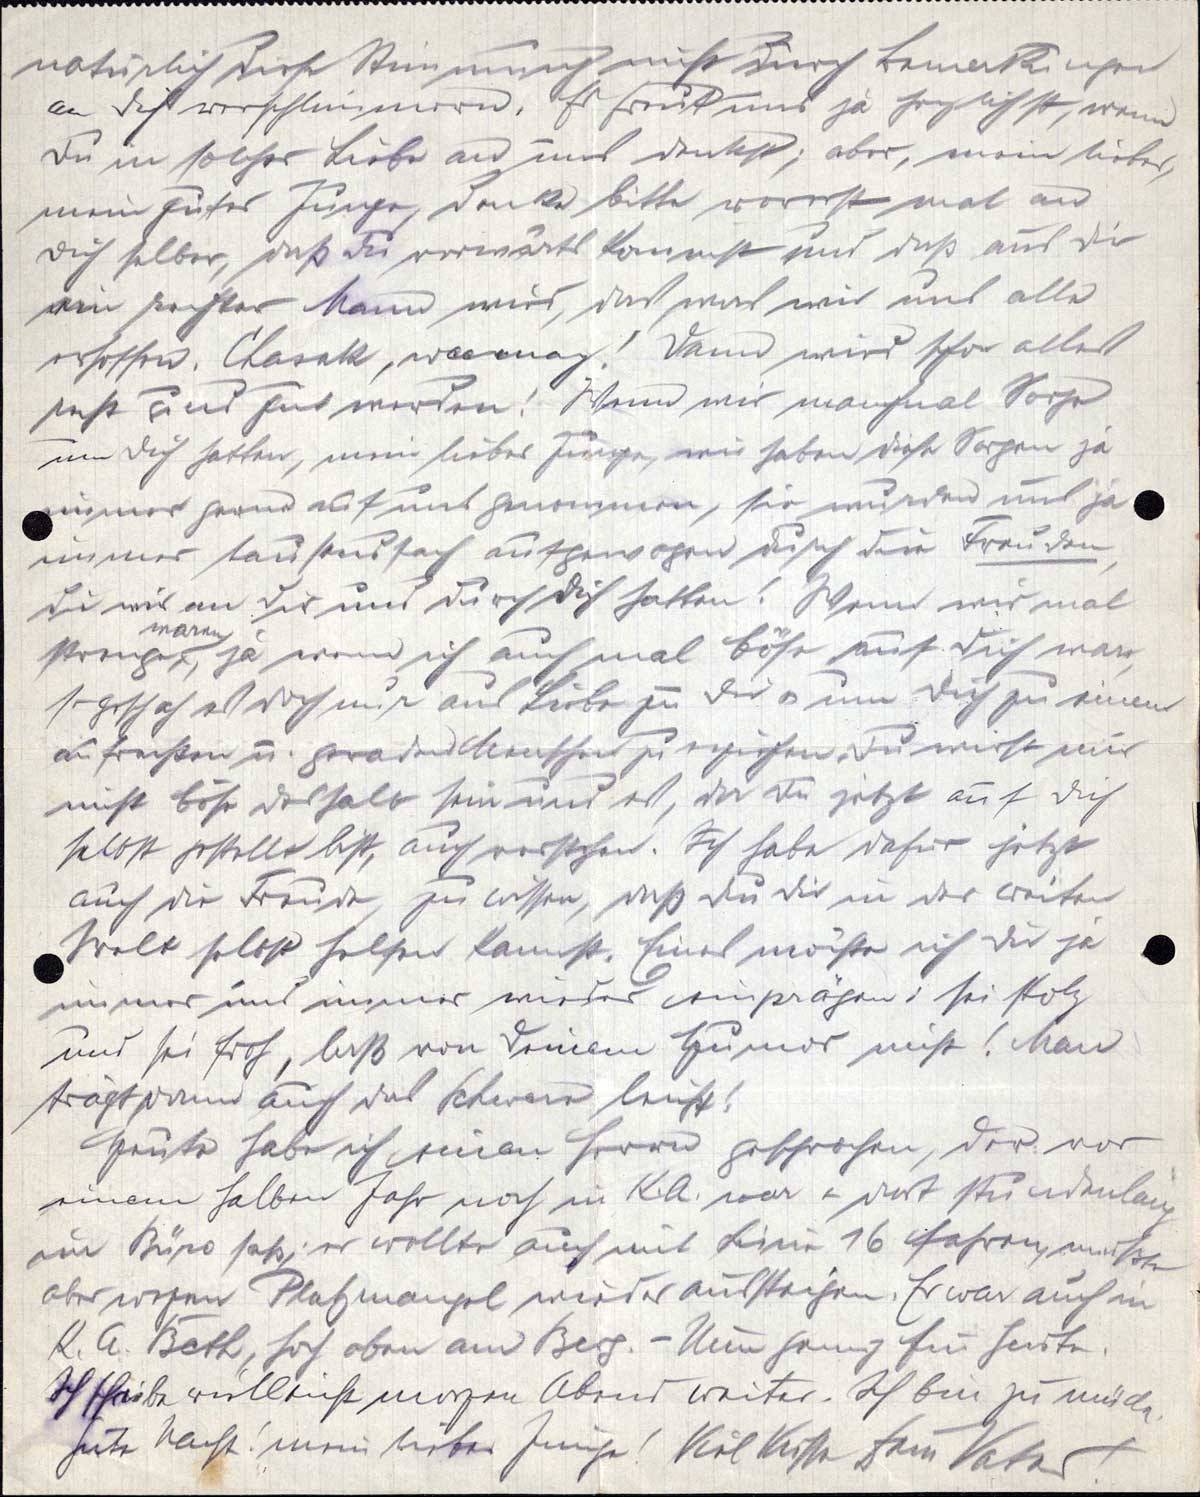 natürlich diese Stimmung nicht durch Bemerkungen
an Dich verschlimmern. Es freut uns ja herzlichst, wenn
Du in solcher Liebe an uns denkst; aber, mein lieber,
mein guter Junge, denke bitte vorerst mal an
Dich selber, daß Du vorwärts kommst und daß aus Dir
ein rechter Mann wird, das was wir uns alle
erhoffen. Chasak, weemaz! Dann wird schon alles
recht und gut werden! Wenn wir manchmal Sorge
um Dich hatten, mein lieber Junge, wir haben diese Sorgen ja
immer gerne auf uns genommen, sie wurden uns ja
immer tausendfach aufgewogen durch die Freuden,
die wir an Dir und durch Dich hatten! Wenn wir mal
strenge waren, ja wenn ich auch mal böse auf Dich war,
so geschah es doch nur aus Liebe zu Dir u um Dich zu einem
aufrechten u. geraden Menschen zu erziehen. Du wirst mir
nicht böse deshalb sein und es, da Du jetzt auf Dich
selbst gestellt bist, auch verstehen. Ich habe dafür jetzt
auch die Freude, zu wissen, daß Du Dir in der weiten
Welt selbst helfen kannst. Eines möchte ich Dir ja
immer und immer wieder einprägen: sei stolz
und sei froh, laß von Deinem Humor nicht! Man
trägt dann auch das Schwere leicht!
Heute habe ich einen Herrn gesprochen, der vor
einem halben Jahr noch in K.A. war u dort stundenlang
im Büro saß; er wollte auch mit Linie 16 fahren, mußte
aber wegen Platzmangel wieder aussteigen. Er war auch in
K. A. Beth, hoch oben am Berg. – Nun genug für heute.
Ich schreibe vielleicht morgen Abend weiter. Ich bin zu müde.
Gute Nacht! mein lieber Junge! Viel Küsse Dein Vater!